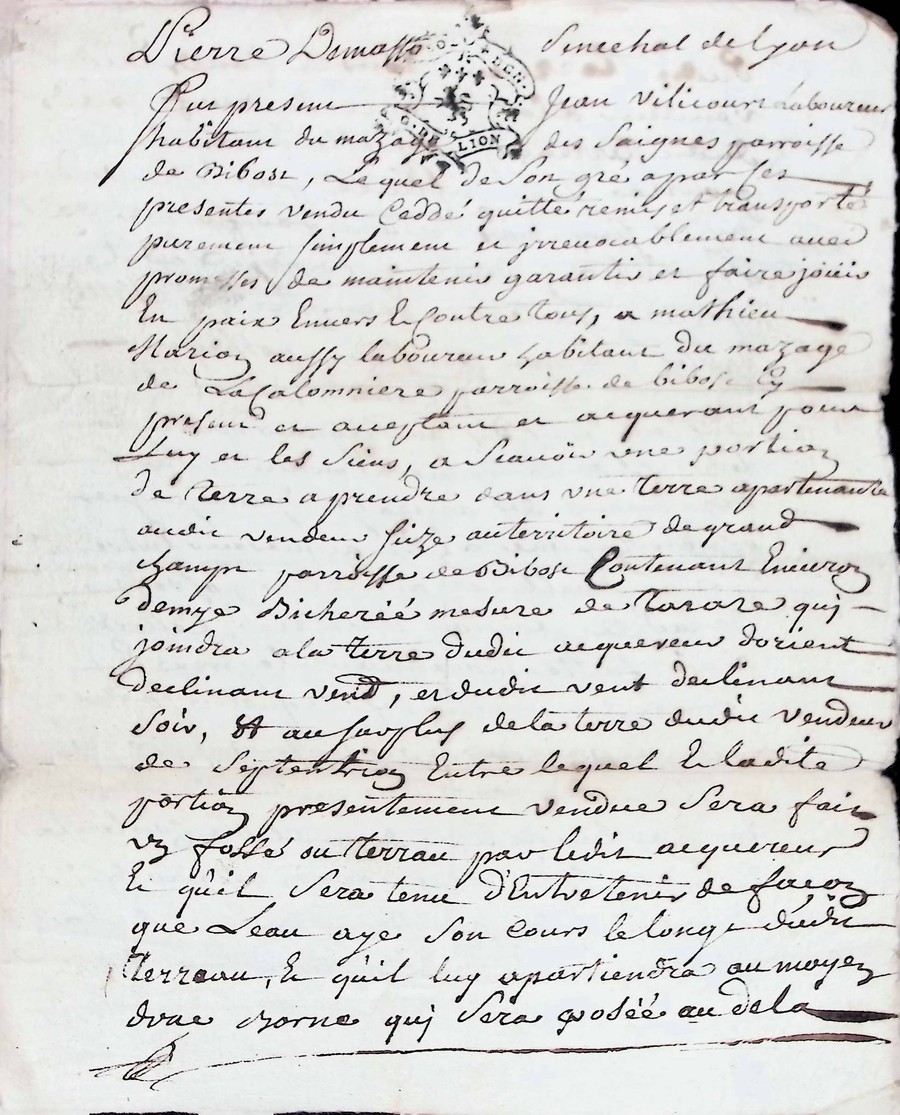 Pierre Demasso Senechal de Lyon
LION
Fut present Jean Vilicourt Laboureur
habitant du mazage des Saignes parroisse
de Bibost, Lequel de Son gré a par ses
presentes vendu Ceddé quitté remis et transporté
purement simplement et irrevocablement avec
promesses de maintenir garantir et faire jouir
En paix Envers et Contre tous, a mathieu
Marion aussy laboureur habitant du mazage
de LaSalomniere parroisse de bibost Cy
present et acceptant et acquerant pour
Luy et les Siens, a Scavoir une portion
de Terre a prendre dans une Terre apartenante
audit vendeur size au territoire de grand
champt parroisse de Bibost Contenant Environ
demye Bicheréé mesure de Tarare qui
joindra a la Terre dudit acquereur dorient
declinant vend, et dudit vent declinant
Soir, et au surplus de la terre dudit vendeur
de Septentrion Entre lequel Et ladite
portion presentement vendue Sera fait
un fossé ou terrau par ledit acquereur
Et qu'il Sera tenu d'Entretenir de façon
que Leau aye Son Cours le long dudit
Terreau, Et qu'il luy apartiendra au moyen
dune Borne qui Sera posée au dela